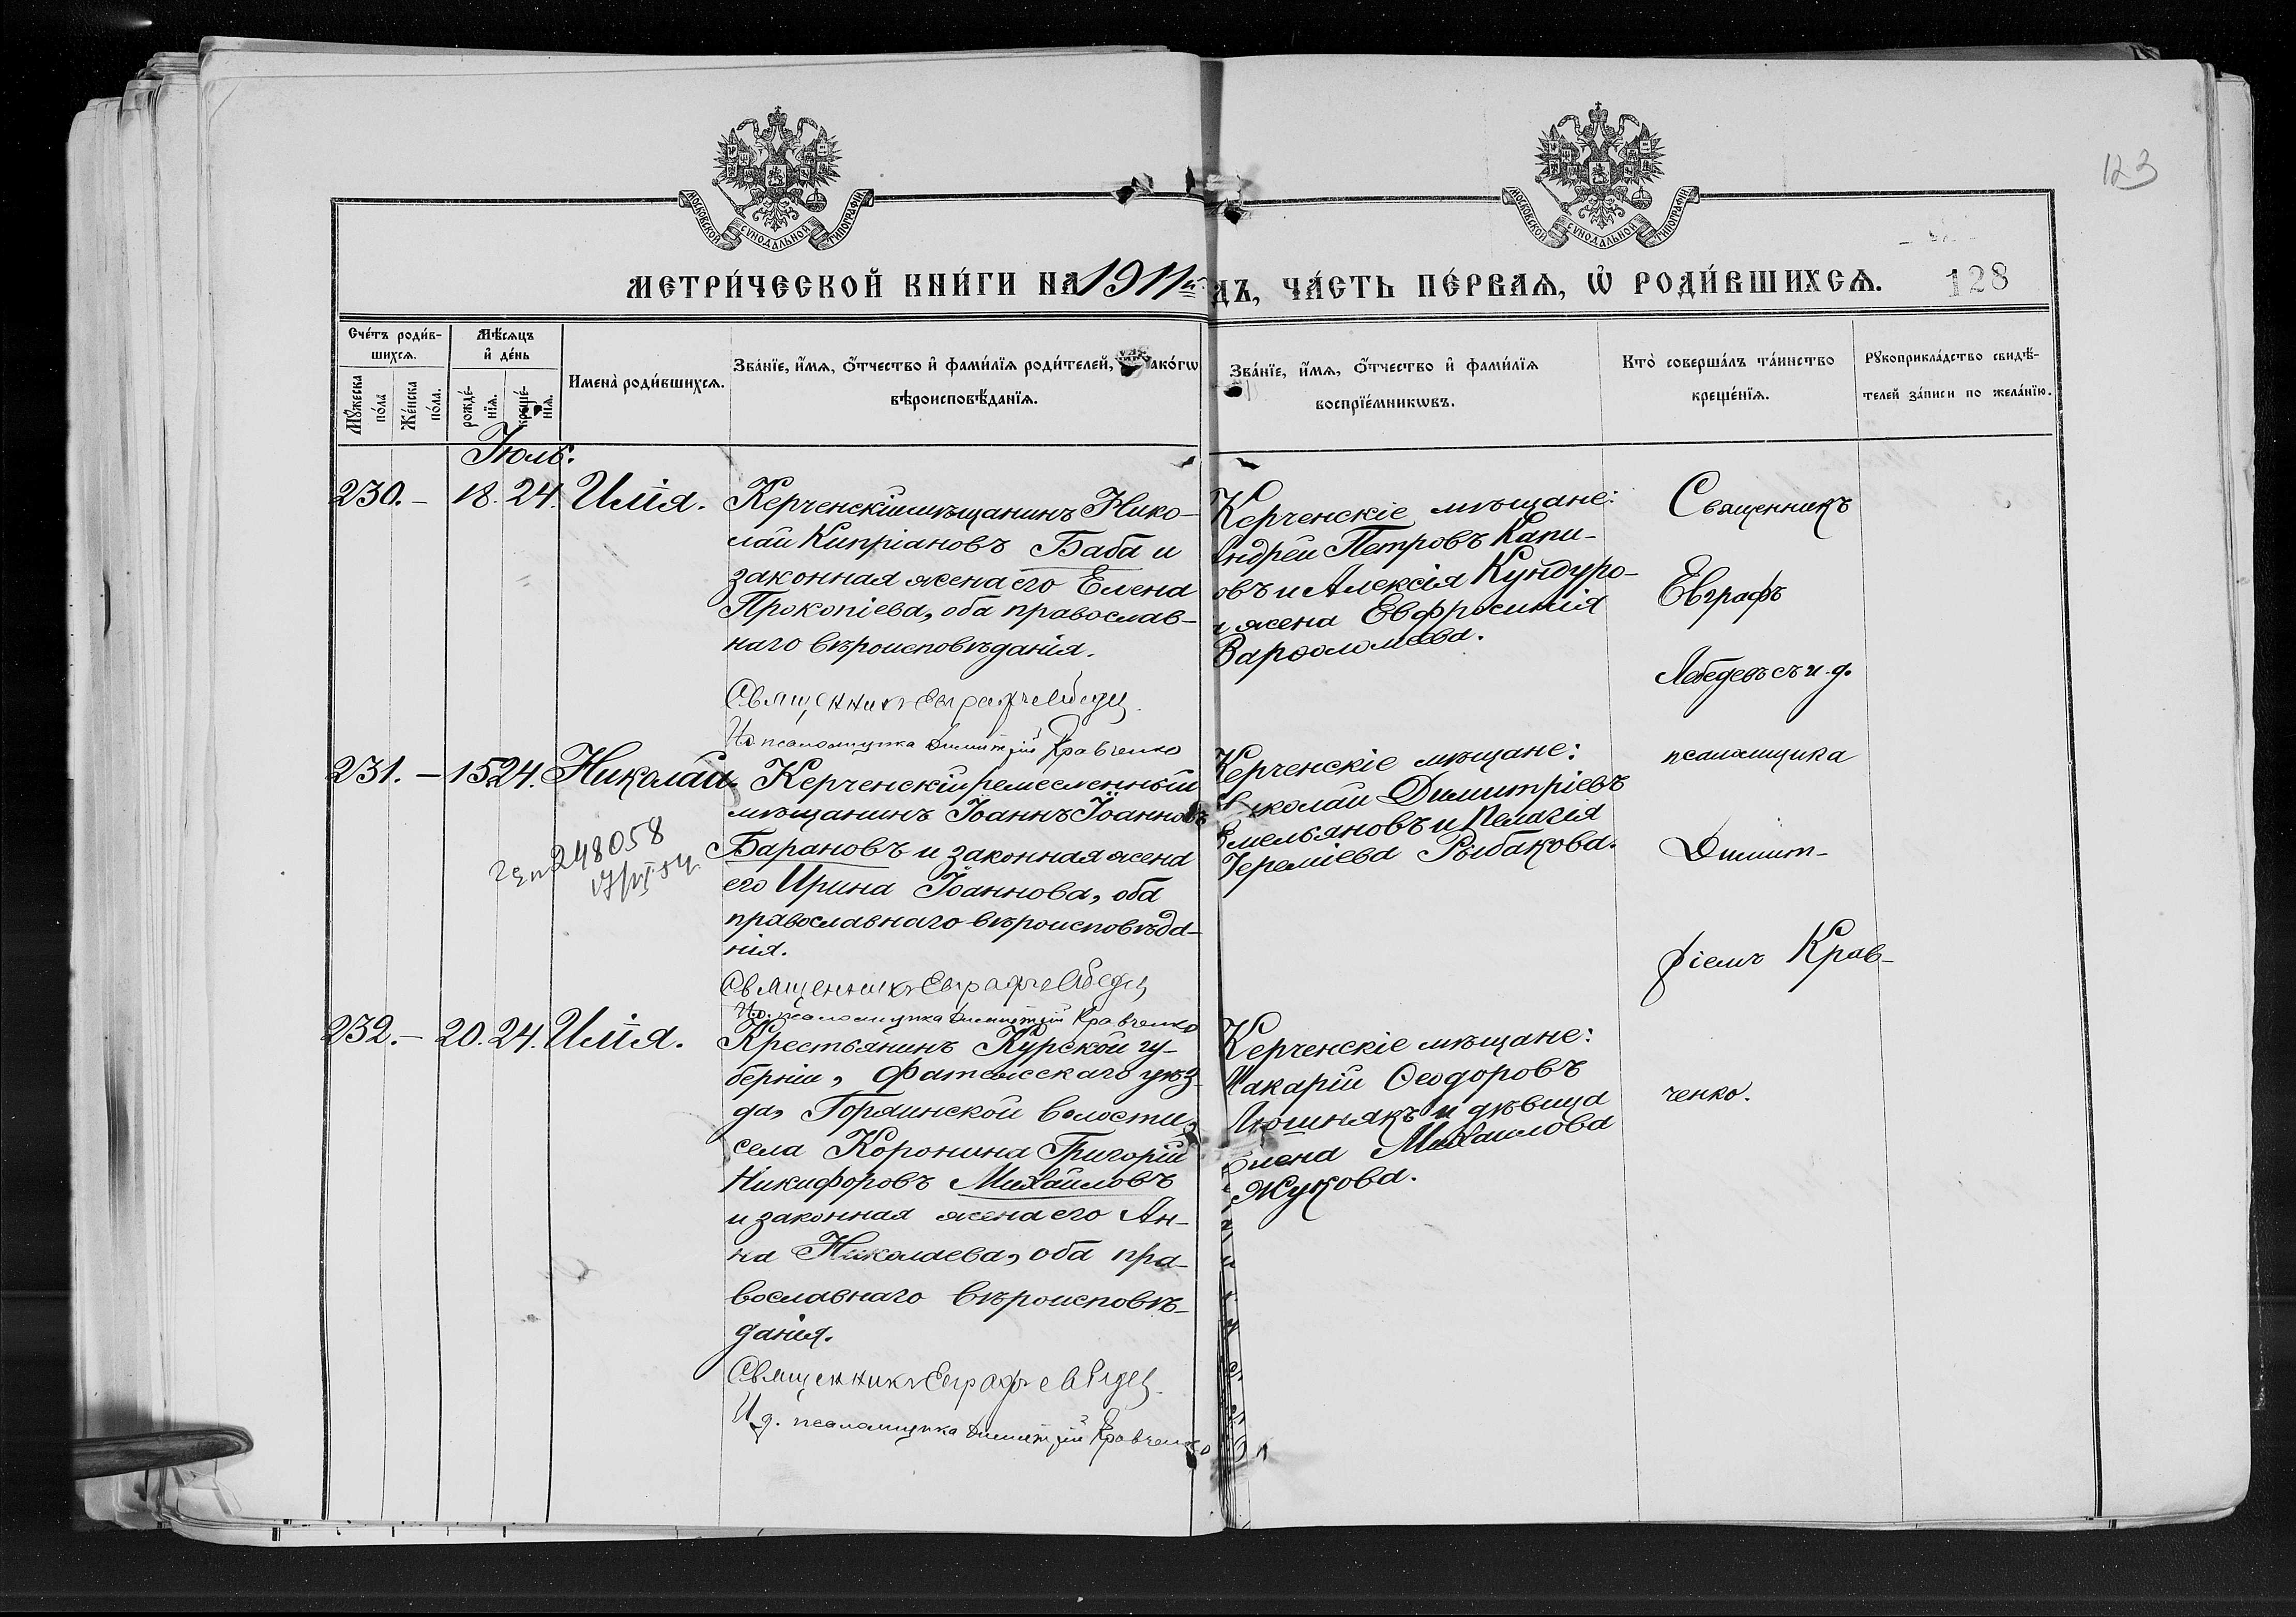 123
МОСКОВСКОЙ СѴНОДАЛЬНОЙ ТИПОГРАФІИ
МОСКОВСКОЙ СѴНОДАЛЬНОЙ ТИПОГРАФІИ
МЕТРИ́ЧЕСКОЙ КНИ́ГИ НА 1911й ДЪ, ЧА́СТЬ ПЕ́РВАѦ, Ѡ҆ РОДИ́ВШИХСѦ. 128
Сче́тъ роди́в-
шихсѧ.
Мꙋ́жеска по́ла
Же́нска по́ла.
Мѣ́сѧцъ
и҆ де́нь
рожде́-
нїѧ.
креще́-
нїѧ.
Имена̀ роди́вшихсѧ.
Зва́нїе, и҆́мѧ, ѻ҆́тчество и҆ фами́лїѧ роди́телей, и҆ како́гѡ
вѣроисповѣ́данїѧ.
Зва́нїе, и҆́мѧ, ѻ҆́тчество и҆ фами́лїѧ
воспрїе́мникѡвъ.
Кто̀ соверша́лъ та́инство
креще́нїѧ.
Рꙋкоприкла́дство свидѣ́-
телей за́писи по жела́нїю.
Іюль.
230. – 18. 24. Илія.
Керченскій мѣщанинъ Нико-
лай Кипріановъ Баба и
законная жена его Елена
Прокопіева, оба православ-
наго вѣроисповѣданія.
Священникъ Евграфъ Лебедев
И.д. псаломщика Димитрій Кравченко
Керченскіе мѣщане:
Андрей Петровъ Капи-
овъ и Алексія Кундуро-
а жена Евфросинія
Варѳоломеева.
Священникъ
Евграфъ
Лебедевъ съ и. д.
псаломщика
Димит-
ріемъ Крав-
ченко.
231. – 15. 24. Николай.
248058
Керченскій ремесленный
мѣщанинъ Іоаннъ Іоанновъ
Барановъ и законная жена
его Ирина Іоаннова, оба
православнаго вѣроисповѣда-
нія.
Священникъ Евграфъ Лебедев
И.д. псаломщика Димитрій Кравченко
Керченскіе мѣщане:
Николай Димитріевъ
Емельяновъ и Пелагія
Іереміева Рыбакова.
232. – 20. 24. Илія.
Крестьянинъ Курской гу-
берніи, Фатежскаго уѣз-
да, Горяинской волости,
села Коронина Григорій
Никифоровъ Михайловъ
и законная жена его Ан-
на Николаева, оба пра-
вославнаго вѣроисповѣ-
данія.
Священникъ Евграфъ Лебедев
И.д. псаломщика Димитрій Кравченко
Керченскіе мѣщане:
Макарій Ѳеодоровъ
Люшнякъ и дѣвица
Елена Михайлова
Жукова.